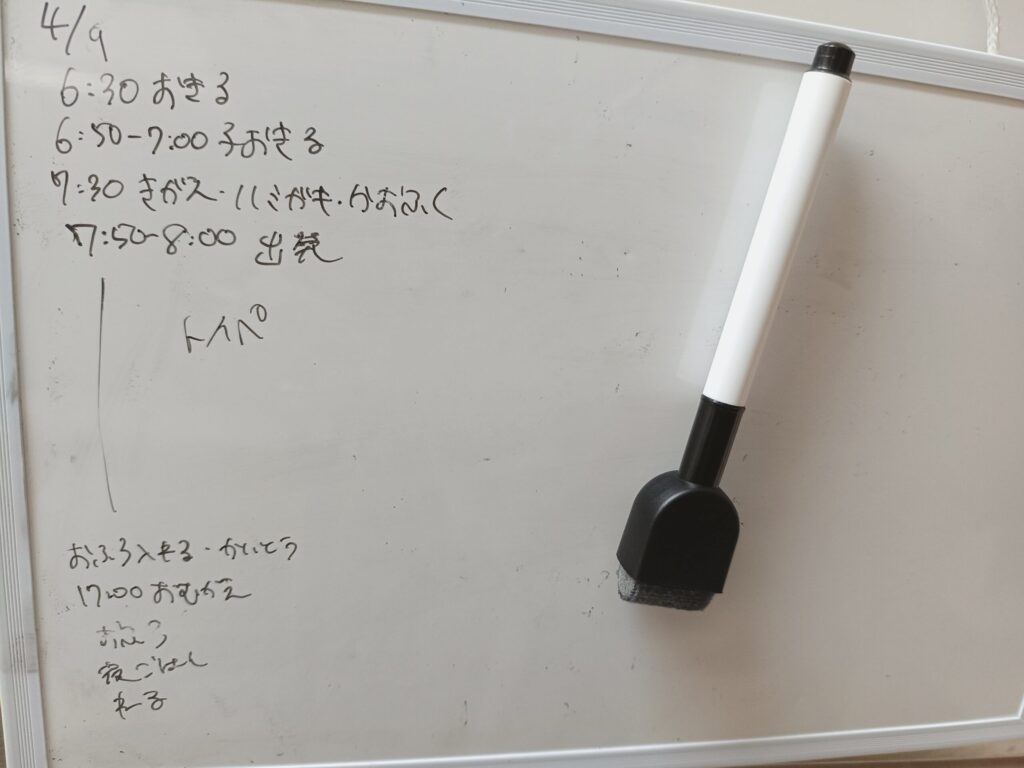 4/9
6:30 おきる
6:50-7:00 子おきる
7:30 きがえ・ハミがき・かおふく
7:50-8:00 出発
トイペ
おふろ入れる・かいとう
17:00 おむかえ
おふろ
夜ごはん
ねる